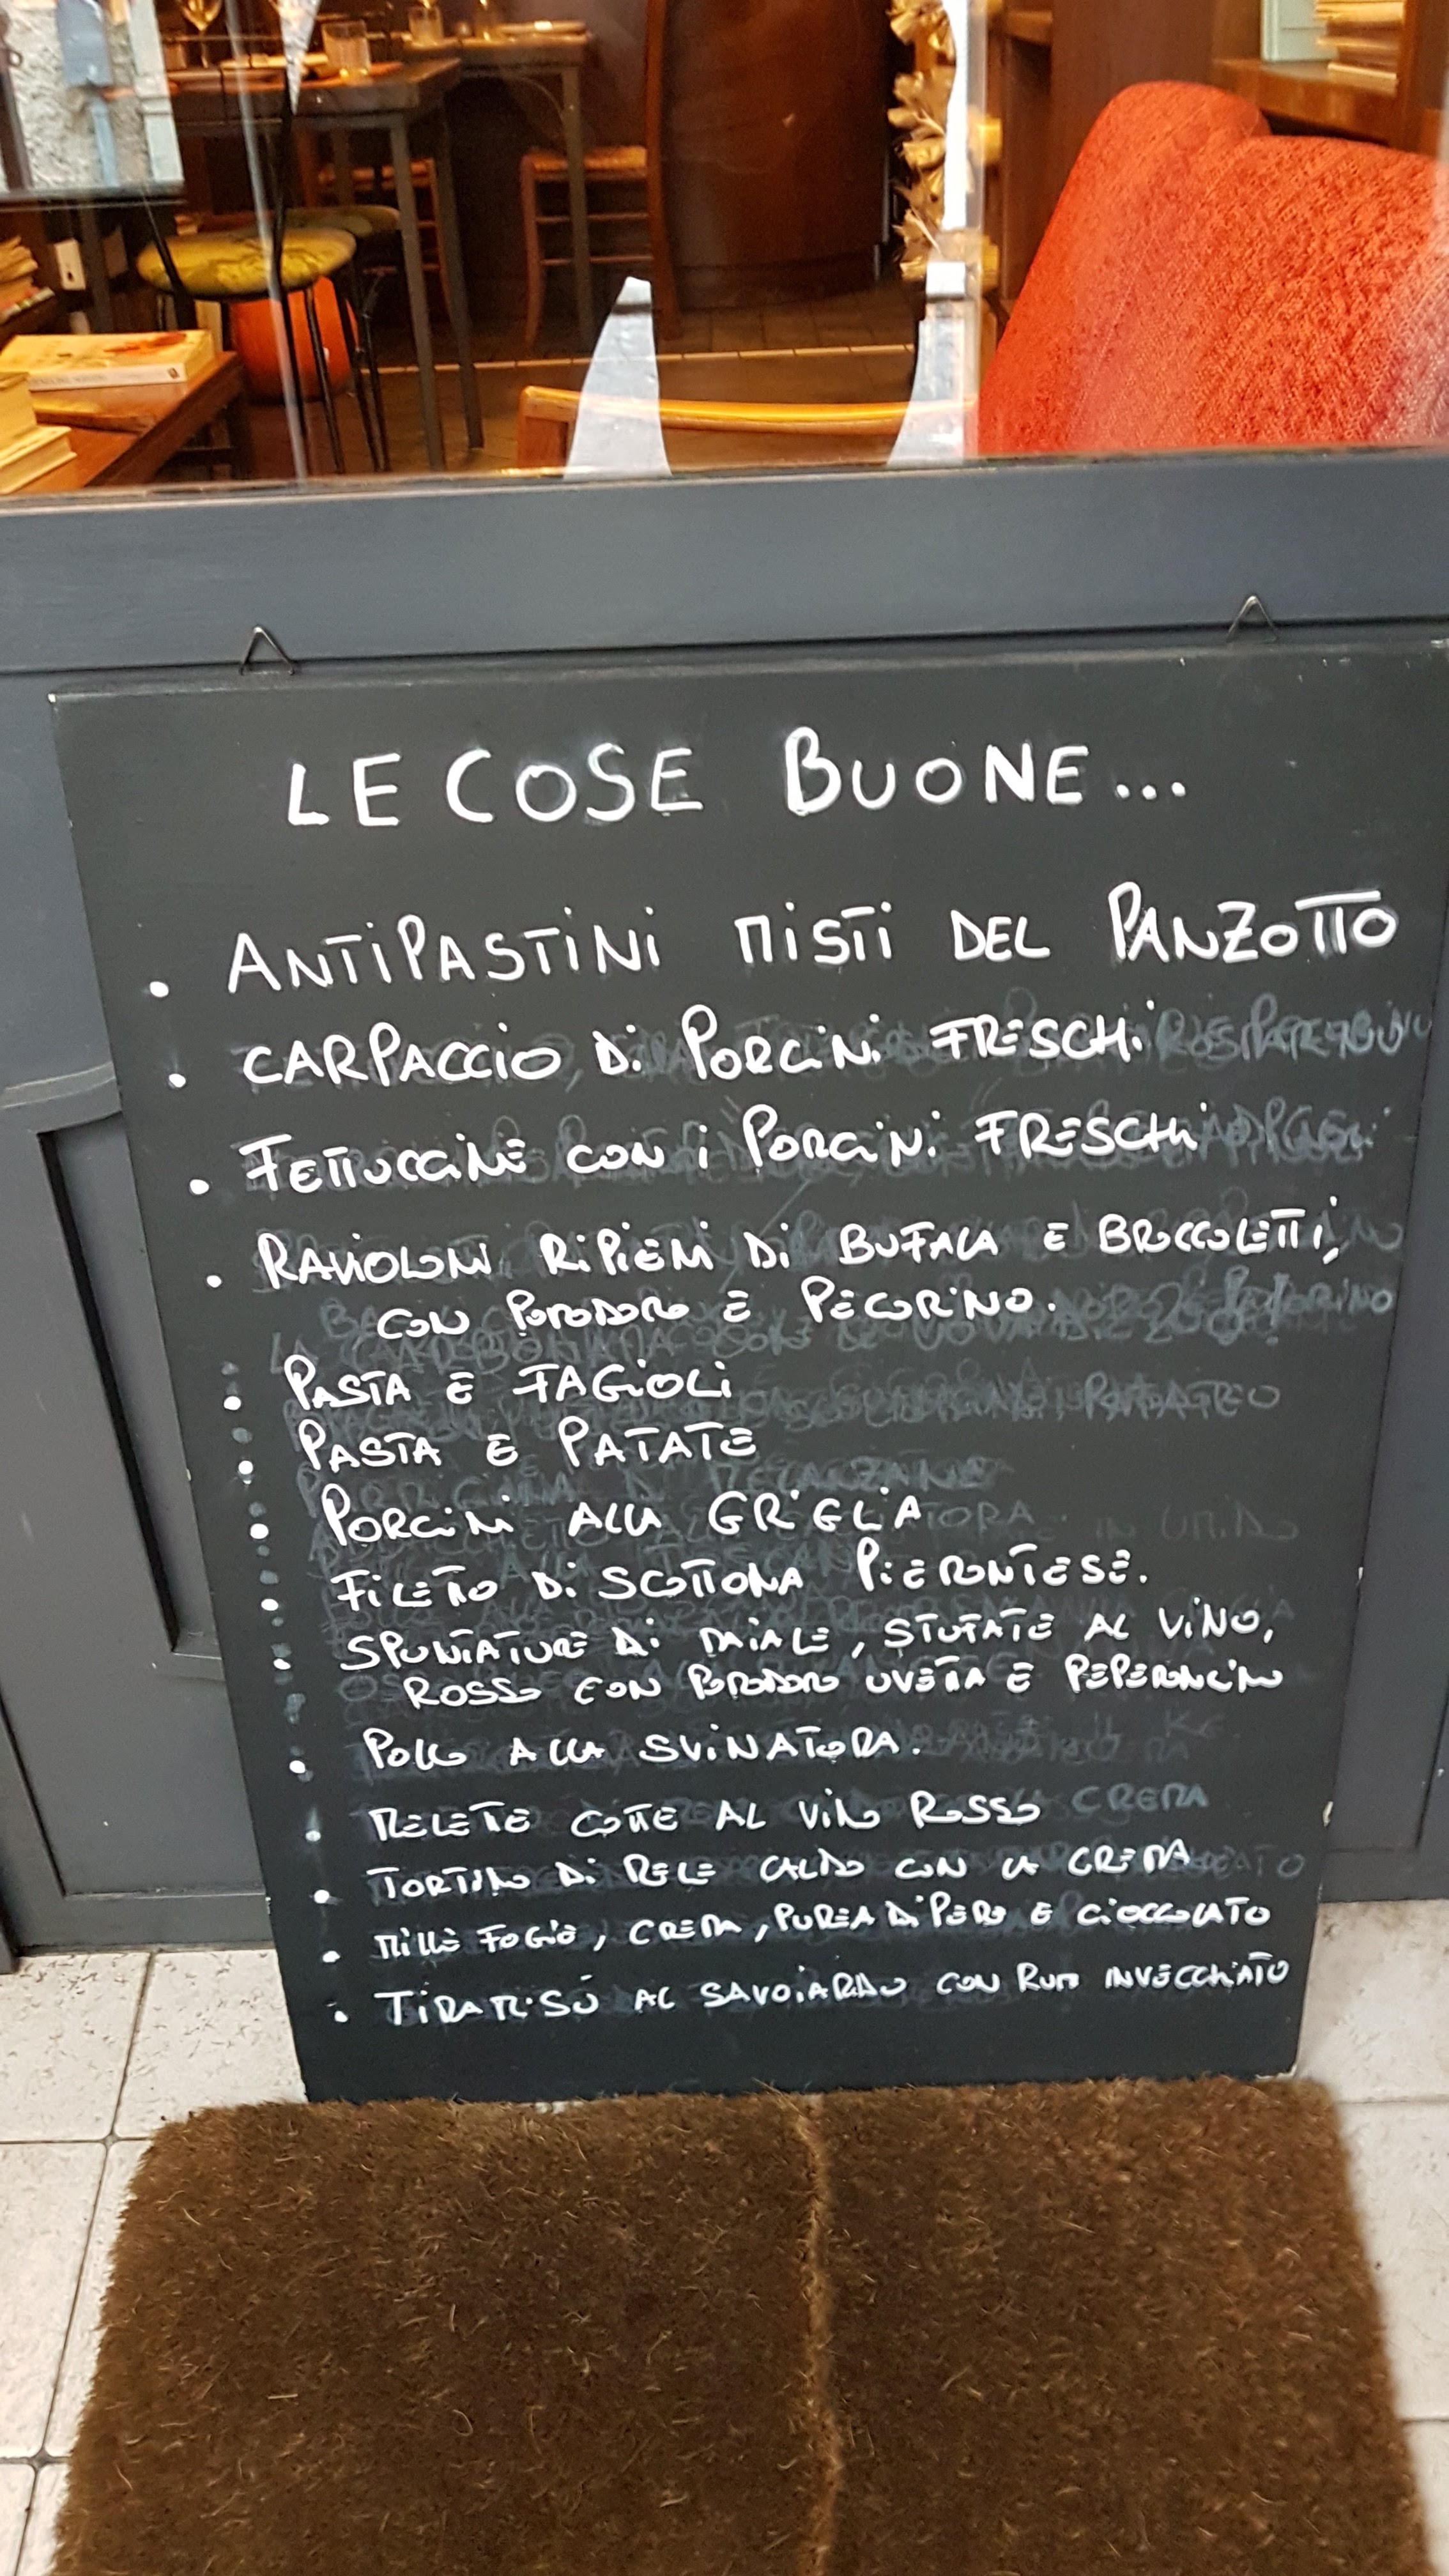 LE COSE BUONE...
• ANTIPASTINI MISTI DEL PANZOTTO
• CARPACCIO DI PORCINI FRESCHI
• FETTUCCINE CON I PORCINI FRESCHI
• RAVIOLONI RIPIENI DI BUFALA E BROCCOLETTI,
CON POMODORO E PECORINO.
• PASTA E FAGIOLI
• PASTA E PATATE
• PORCINI ALLA GRIGLIA
• FILETTO DI SCOTTONA PIEMONTESE.
• SPUNTATURE DI MAIALE, STUFATE AL VINO,
ROSSO CON POMODORO UVETTA E PEPERONCINO
• POLLO ALLA SVINATORA.
• MELETTE COTTE AL VINO ROSSO
• TORTINO DI MELE CALDO CON LA CREMA
• MILLE FOGIE, CREMA, PUREA DI PERE E CIOCCOLATO
• TIRAMISÙ AL SAVOIARDO CON RUM INVECCHIATO